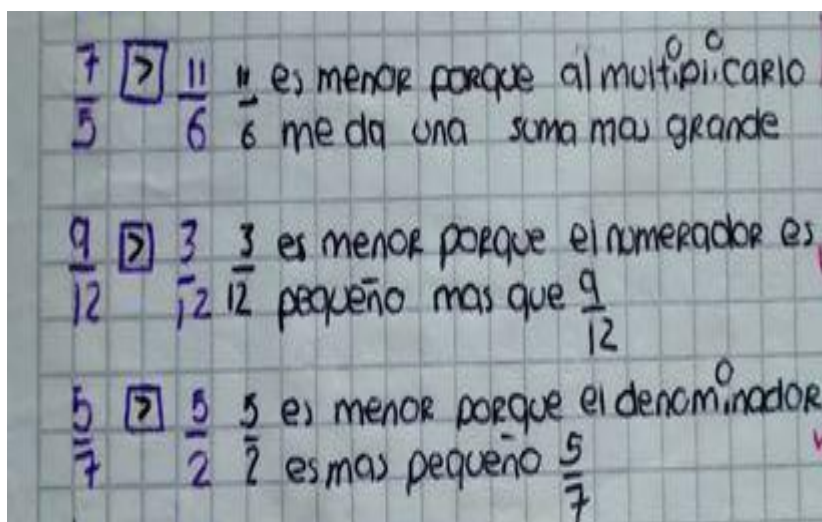 7/5 > 11/6 11/6 es menor porque al multiplicarlo
me da una suma mas grande
9/12 > 3/12 3/12 es menor porque el numerador es
pequeño mas que 9/12
5/7 > 5/2 5/2 es menor porque el denominador
es mas pequeño 5/7